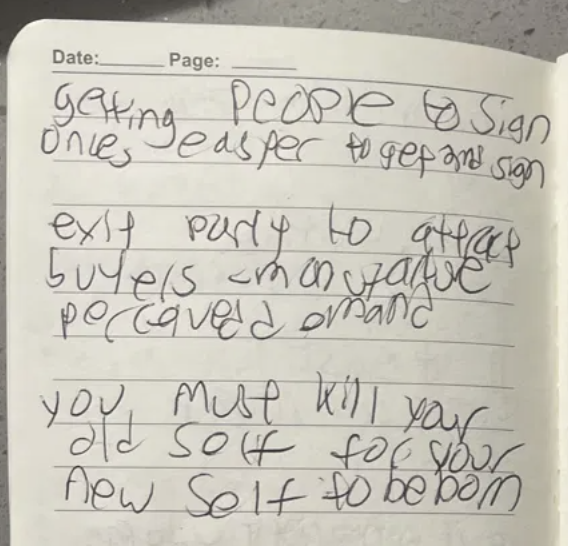 Date: Page:
getting people to sign
onces easper to get and sign
exit party to attract
buyers - manufacture
percaved demand
you must kill your
old self for your
new self to be born